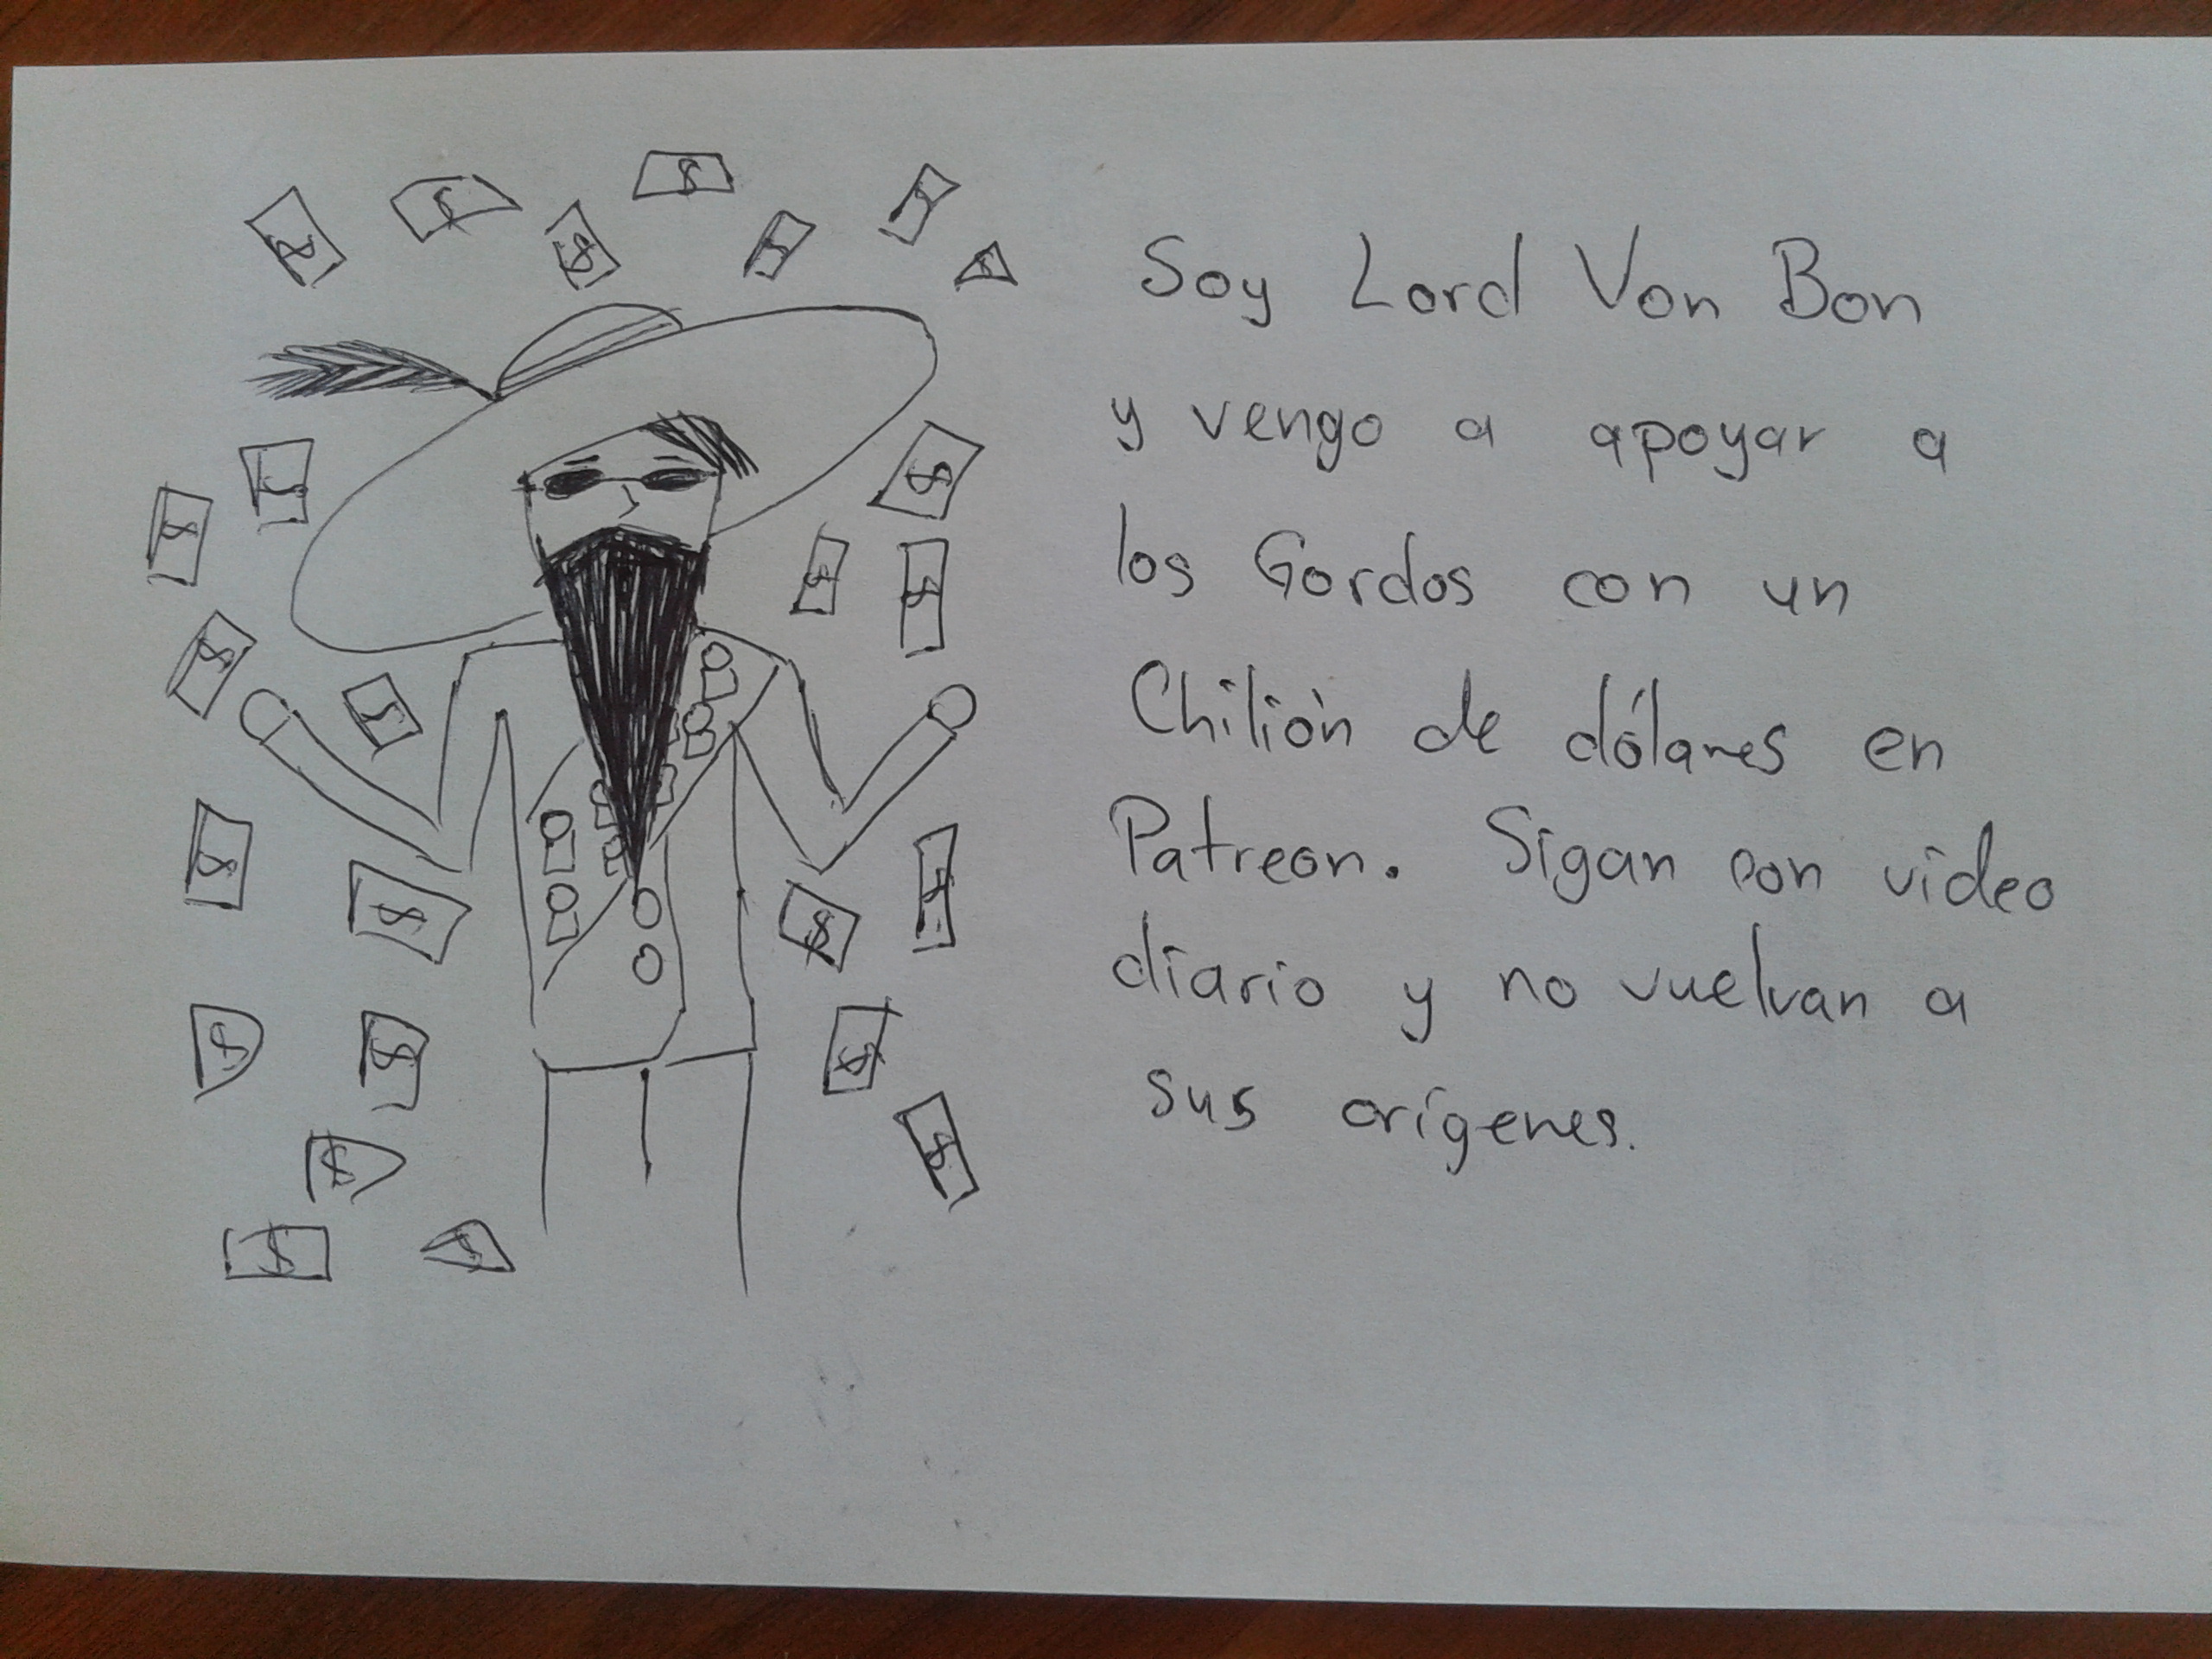 Soy Lord Von Bon
y vengo a apoyar a
los Gordos con un
Chilión de dólares en
Patreon. Sigan con video
diario y no vuelvan a
sus orígenes.